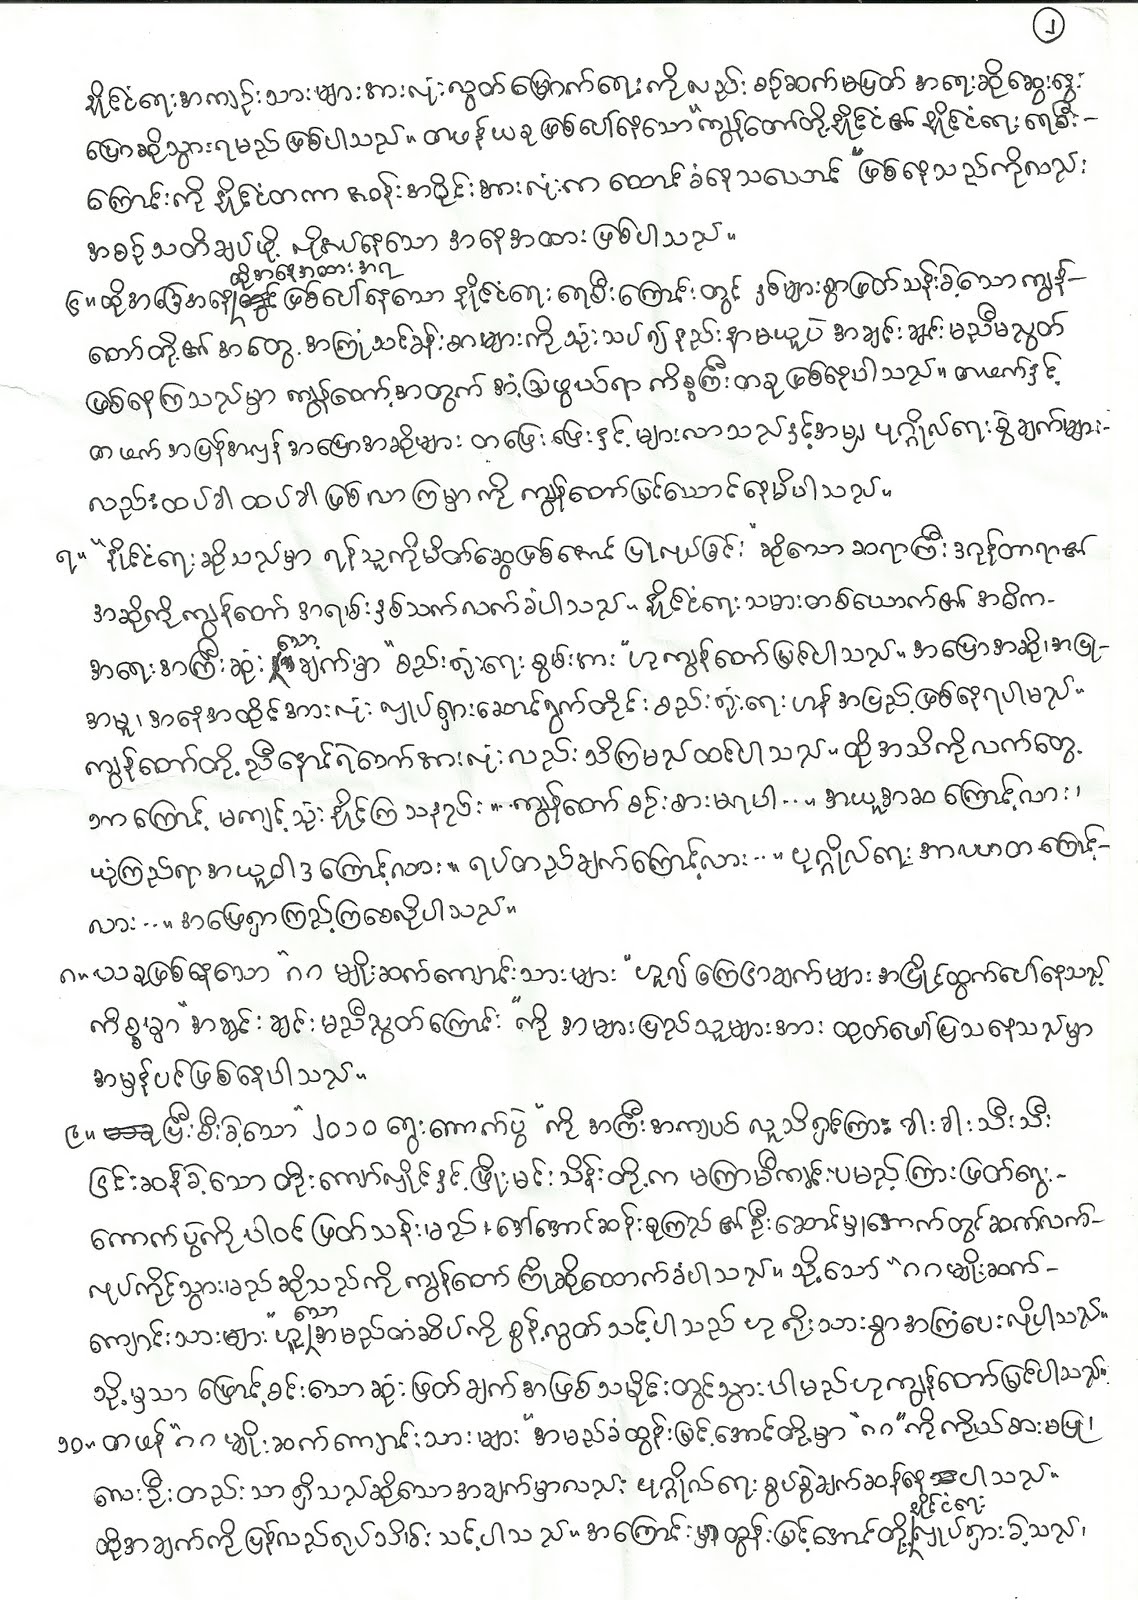 ၂
နိုင်ငံရေးအကျဉ်းသားများအားလုံးလွတ်မြောက်ရေးကိုလည်း စဉ်ဆက်မပြတ် အရေးဆိုဆွေးနွေး
ပြောဆိုသွားရမည်ဖြစ်ပါသည်။ တဖန်ယခုဖြစ်ပေါ်နေသော "ကျွန်တော်တို့နိုင်ငံ၏ နိုင်ငံရေးရေစီး–
ကြောင်းကို နိုင်ငံတကာ ဝန်းအဝိုင်းအားလုံးက ထောင်ခံနေသယောင်" ဖြစ်နေသည်ကိုလည်း
အစဉ်သတိချပ်ဖို့ လိုအပ်နေသော အနေအထားဖြစ်ပါသည်။
ထိုအနေအထားအရ
၆။ ထိုအခြေအနေတွင် ဖြစ်ပေါ်နေသော နိုင်ငံရေးရေစီးကြောင်းတွင် နှစ်များစွာဖြတ်သန်းခဲ့သော ကျွန်–
တော်တို့၏ အတွေ့အကြုံသင်ခန်းစာများကို သုံးသပ်၍ နည်းနာမယူပဲ အချင်းချင်းမညီမညွတ်
ဖြစ်နေကြသည်မှာ ကျွန်တော့်အတွက် အံ့ဩဖွယ်ရာ ကိစ္စကြီးတခုဖြစ်နေပါသည်။ တဖက်နှင့်
တဖက် အပြန်အလှန်အပြောအဆိုများ တဖြေးဖြေးနှင့် များလာသည်နှင့်အမျှ ပုဂ္ဂိုလ်ရေးစွဲချက်များ–
လည်းထပ်ခါထပ်ခါ ဖြစ်လာကြမှာကို ကျွန်တော်မြင်ယောင်နေမိပါသည်။
၇။ "နိုင်ငံရေးဆိုသည်မှာ ရန်သူကိုမိတ်ဆွေဖြစ်အောင် ပြုလုပ်ခြင်း" ဆိုသော ဆရာကြီးဒဂုန်တာရာ၏
အဆိုကို ကျွန်တော် အရမ်းနှစ်သက်လက်ခံပါသည်။ နိုင်ငံရေးသမားတစ်ယောက်၏ အဓိက–
သော
အရေးအကြီးဆုံး ချက်မှာ "စည်းရုံးရေးစွမ်းအား" ဟုကျွန်တော်မြင်ပါသည်။ အပြောအဆို၊ အပြု–
အမူ၊ အနေအထိုင်အားလုံး လှုပ်ရှားဆောင်ရွက်တိုင်း စည်းရုံးရေးဟန်အပြည့်ဖြစ်နေရပါမည်။
ကျွန်တော်တို့ ညီနောင်ရဲဘော်အားလုံးလည်း သိကြမည်ထင်ပါသည်။ ထိုအသိကို လက်တွေ့
ဘာကြောင့် မကျင့်သုံးနိုင်ကြသနည်း။ ကျွန်တော် စဉ်းစားမရပါ...။ အယူအဆကြောင့်လား၊
ယုံကြည်ရာအယူဝါဒကြောင့်လား။ ရပ်တည်ချက်ကြောင့်လား...။ ပုဂ္ဂိုလ်ရေး အာဃာတကြောင့်–
လား...။ အဖြေရှာကြည့်ကြစေလိုပါသည်။
၈။ ယခုဖြစ်နေသော "၈၈ မျိုးဆက်ကျောင်းသားများ" ဟူ၍ ကြေငြာချက်များ အပြိုင်ထွက်ပေါ်နေသည့်
ကိစ္စမှာ "အချင်းချင်းမညီညွတ်ကြောင်း" ကို အများပြည်သူများအား ထုတ်ဖော်ပြသနေသည်မှာ
အမှန်ပင်ဖြစ်နေပါသည်။
၉။ ပြီးစီးခဲ့သော "၂၀၁၀ ရွေးကောက်ပွဲ" ကို အကြီးအကျယ် လူသိရှင်ကြား ခါးခါးသီးသီး
ငြင်းဆန်ခဲ့သော တိုးကျော်လှိုင်နှင့် ဖြိုးမင်းသိန်းတို့က မကြာမီကျင်းပမည့် ကြားဖြတ်ရွေး–
ကောက်ပွဲကို ပါဝင်ဖြတ်သန်းမည် + ဒေါ်အောင်ဆန်းစုကြည်၏ ဦးဆောင်မှုအောက်တွင်ဆက်လက်–
လုပ်ကိုင်သွားမည်ဆိုသည်ကို ကျွန်တော် ကြိုဆိုထောက်ခံပါသည်။ သို့သော် "၈၈မျိုးဆက်–
သော
ကျောင်းသားများ" ဟူ အမည်တံဆိပ်ကို စွန့်လွှတ်သင့်ပါသည် ဟု ရိုးသားစွာအကြံပေးလိုပါသည်။
သို့မှသာ ဖြောင့်စင်းသောဆုံးဖြတ်ချက်အဖြစ် သမိုင်းတွင်သွားပါမည်ဟုကျွန်တော်မြင်ပါသည်။
၁၀။ တဖန် "၈၈မျိုးဆက်ကျောင်းသားများ" အမည်ခံထွန်းမြင့်အောင်တို့မှာ "၈၈" ကိုကိုယ်စားမပြု၊
လေးဦးတည်းသာရှိသည်ဆိုသောအချက်မှာလည်း ပုဂ္ဂိုလ်ရေးစွပ်စွဲချက်ဆန်နေပါသည်။
နိုင်ငံရေး
ထိုအချက်ကိုပြန်လည်ရုပ်သိမ်းသင့်ပါသည်။ အကြောင်းမှာထွန်းမြင့်အောင်တို့လှုပ်ရှားခဲ့သည်၊